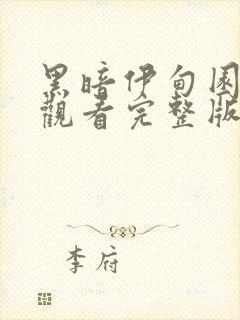 黑暗伊甸园
觀看完整版
李府